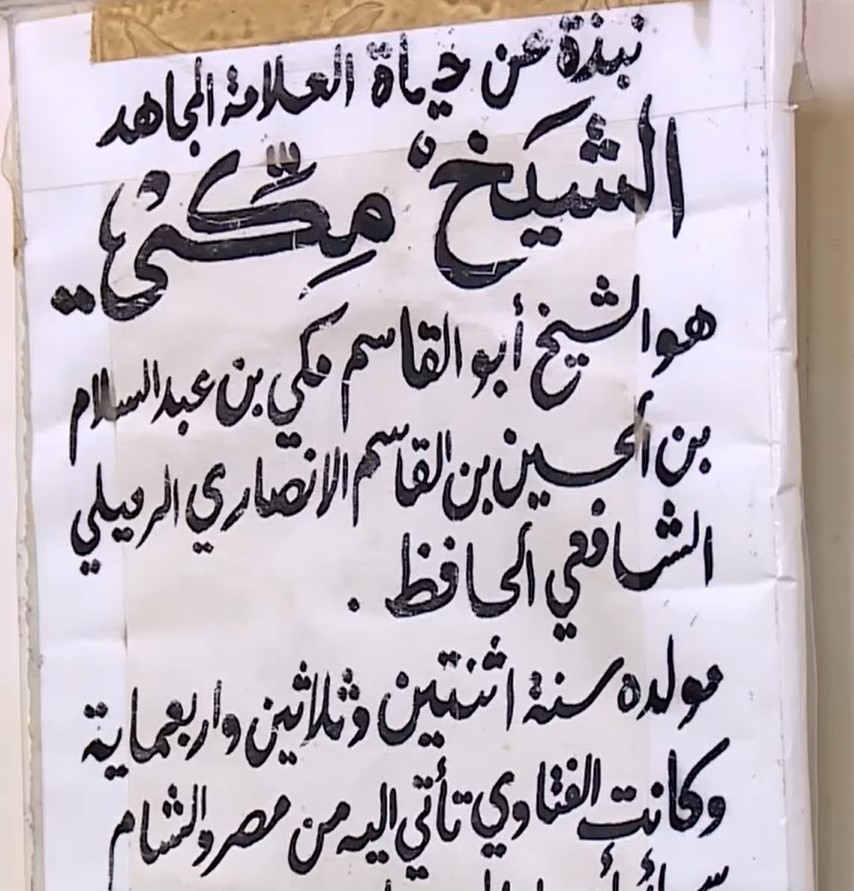 نبذة عن حياة العلامة المجاهد
الشيخ مكّي
هو الشيخ أبو القاسم مكي بن عبد السلام
بن الحسين بن القاسم الانصاري الرميلي
الشافعي الحافظ .
مولده سنة اثنتين وثلاثين واربعماية
وكانت الفتاوي تأتي اليه من مصر والشام